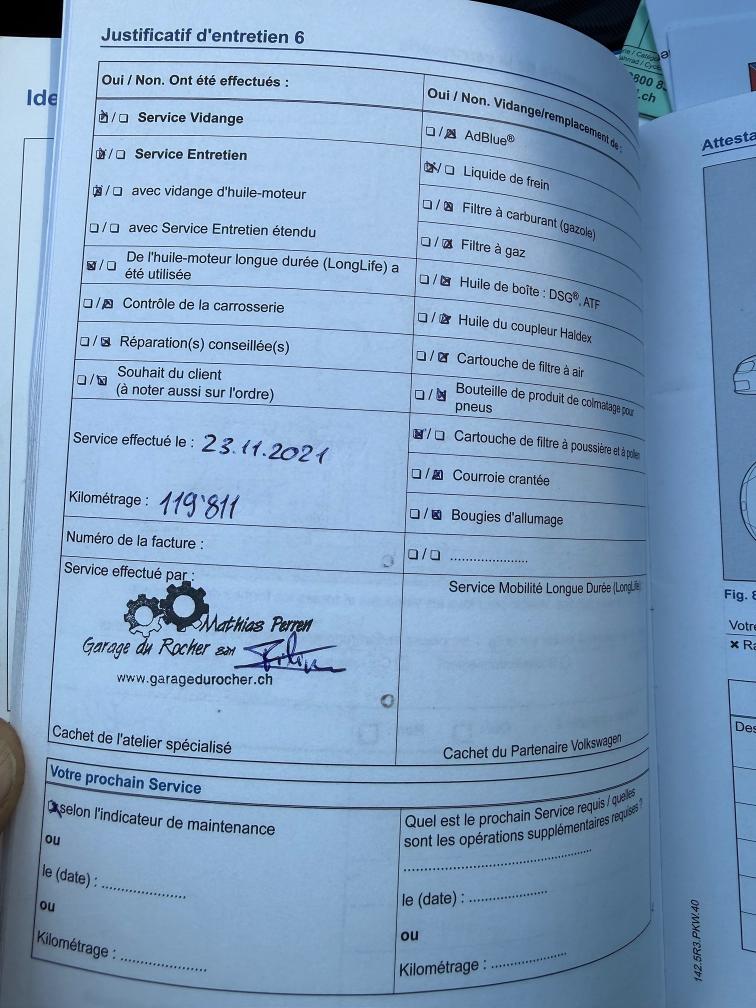 Justificatif d'entretien 6
Oui / Non. Ont été effectués :
☒ / ☐ Service Vidange
☒ / ☐ Service Entretien
☒ / ☐ avec vidange d'huile-moteur
☐ / ☐ avec Service Entretien étendu
☒ / ☐ De l'huile-moteur longue durée (LongLife) a
été utilisée
☐ / ☒ Contrôle de la carrosserie
☐ / ☒ Réparation(s) conseillée(s)
☐ / ☒ Souhait du client
(à noter aussi sur l'ordre)
Service effectué le : 23.11.2021
Kilométrage : 119'811
Numéro de la facture :
Service effectué par :
Mathias Perren
Garage du Rocher
www.garagedurocher.ch
Cachet de l'atelier spécialisé
Oui / Non. Vidange/remplacement de :
☐ / ☒ AdBlue®
☒ / ☐ Liquide de frein
☐ / ☒ Filtre à carburant (gazole)
☐ / ☒ Filtre à gaz
☐ / ☒ Huile de boîte : DSG®, ATF
☐ / ☒ Huile du coupleur Haldex
☐ / ☒ Cartouche de filtre à air
☐ / ☒ Bouteille de produit de colmatage pour
pneus
☒ / ☐ Cartouche de filtre à poussière et à pollen
☐ / ☒ Courroie crantée
☐ / ☒ Bougies d'allumage
☐ / ☐ ......................
Service Mobilité Longue Durée (LongLife)
Cachet du Partenaire Volkswagen
Votre prochain Service
☒ selon l'indicateur de maintenance
ou
le (date) : ......................
ou
Kilométrage : ......................
Quel est le prochain Service requis / quelles
sont les opérations supplémentaires requises ?
..................................................
le (date) : ......................
ou
Kilométrage : ......................
142.5R3.PKW.40
Ide
Attesta
Fig. 8
Votre
✖ Ra
Des
.ch